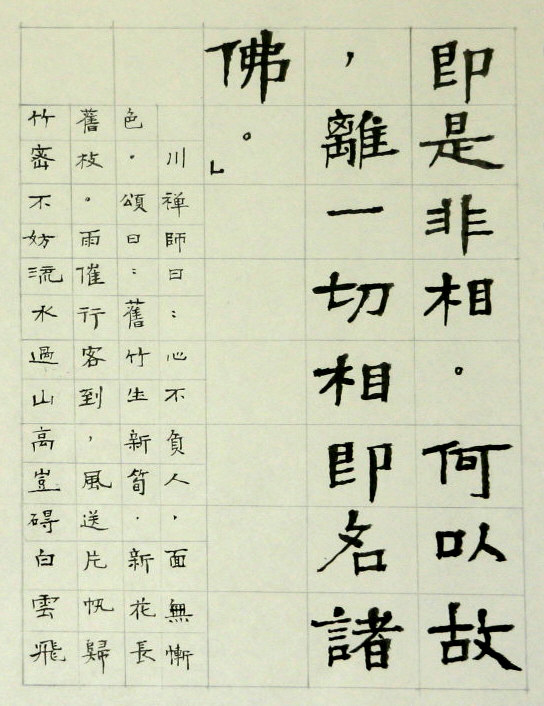 即是非相。何以故
，離一切相即名諸
佛。」
川禅師曰：心不負人，面無慚
色。頌曰：舊竹生新筍．新花長
舊枝。雨催行客到，風送片帆歸
竹密不妨流水過山高豈碍白雲飛